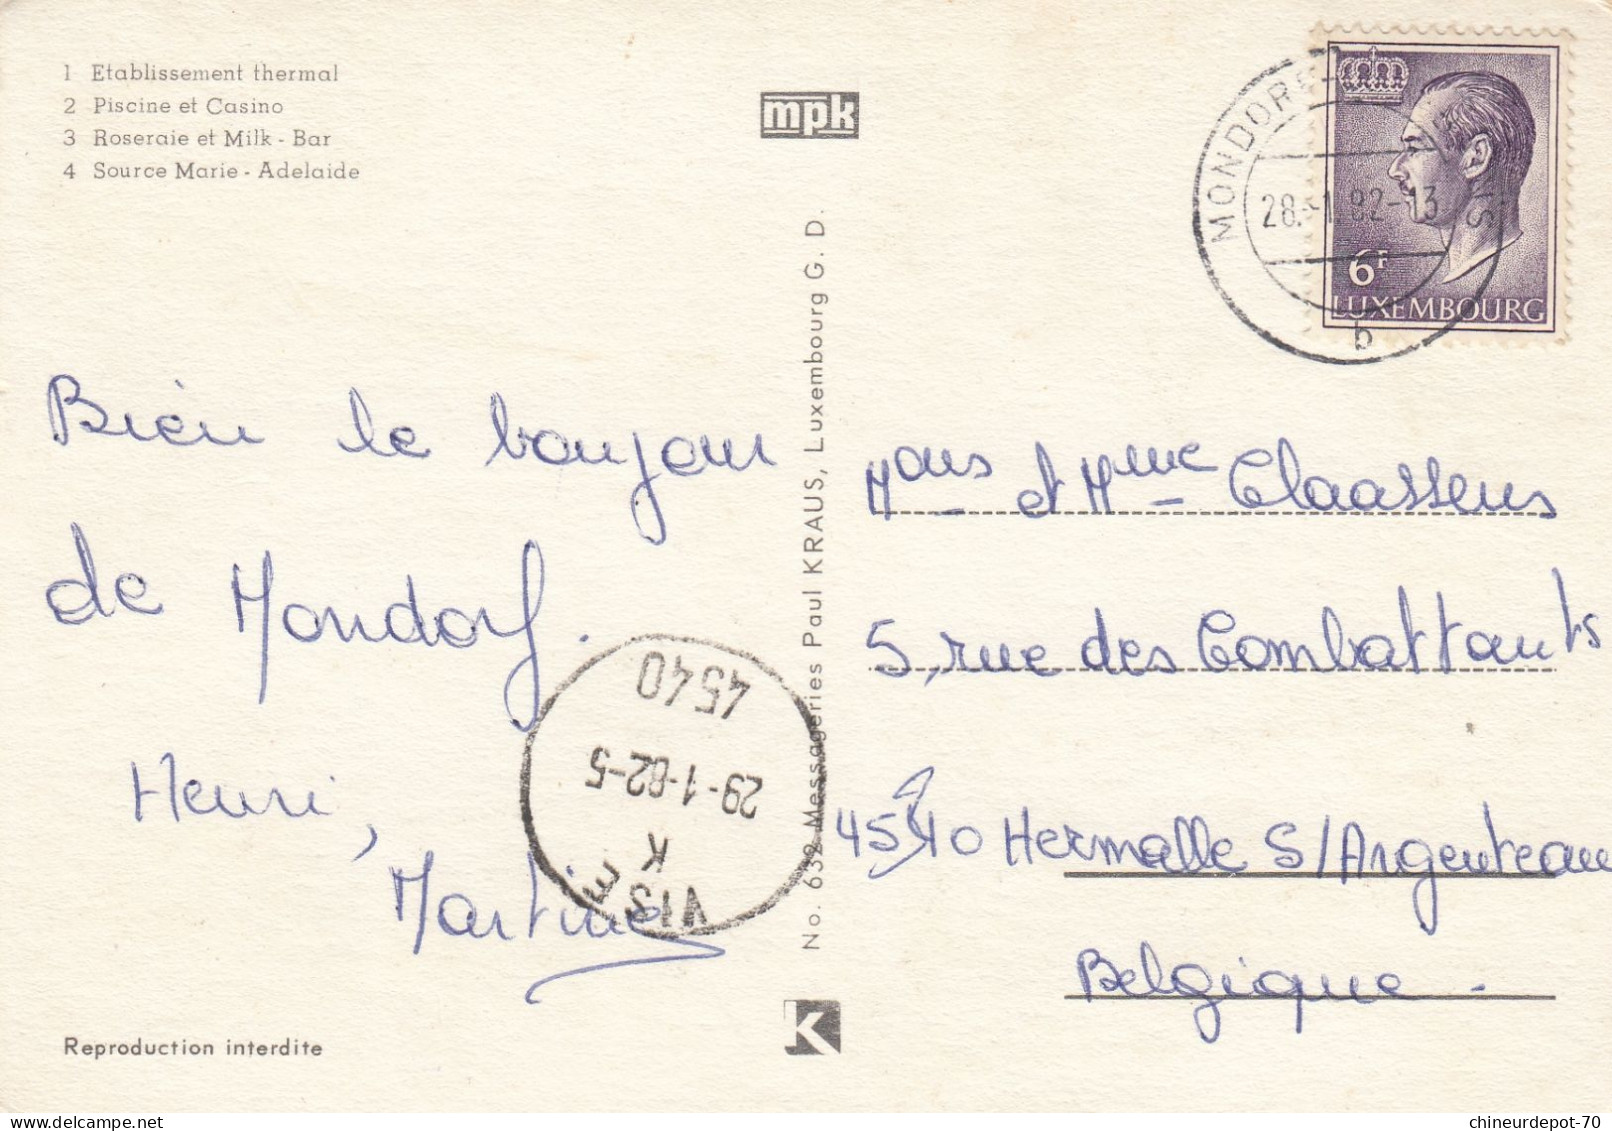 1 Etablissement thermal
2 Piscine et Casino
3 Roseraie et Milk - Bar
4 Source Marie - Adelaide
mpk
MONDORF
28.-1.82-13
b
6F
LUXEMBOURG
Bien le bonjour
de Mondorf.
Henri,
Martine
4540
29-1-82-5
K
VISE
No. 639 Messageries Paul KRAUS, Luxembourg G. D.
Mons et Mme Claassens
5, rue des Combattants
4540 Hermalle S/Argenteau
Belgique.
K
Reproduction interdite
chineurdepot-70